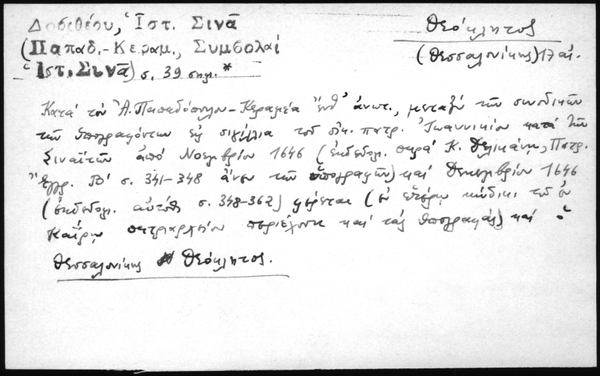 Δοσιθέου, Ἱστ. Σινᾶ
(Παπαδ.-Κεραμ., Συμβολαί
Ἱστ. Σινᾶ) σ. 39 σημ. *
Θεόκλητος
(Θεσσαλονίκης) 17 αἰ.
Κατά τόν Ἀ. Παπαδόπουλον-Κεραμέα ἔνθ' ἀνωτ., μεταξύ τῶν συνοδικῶν
τῶν ὑπογραψάντων εἰς σιγίλλια τοῦ οἰκ. πατρ. Ἰωαννικίου κατά τῶν
Σιναϊτῶν ἀπό Νοεμβρίου 1646 (ἐκδεδομ. παρά Κ. Δελικάνη, Πατρ.
Ἔγγρ. Β' σ. 341-348 ἄνευ τῶν ὑπογραφῶν) καί Δεκεμβρίου 1646
(ἐκδεδομ. αὐτόθι σ. 348-362) φέρεται (ἐν ἑτέρῳ κώδικι τοῦ ἐν
Καΐρῳ πατριαρχείου περιέχοντι καί τάς ὑπογραφάς) καί ὁ
Θεσσαλονίκης Θεόκλητος.